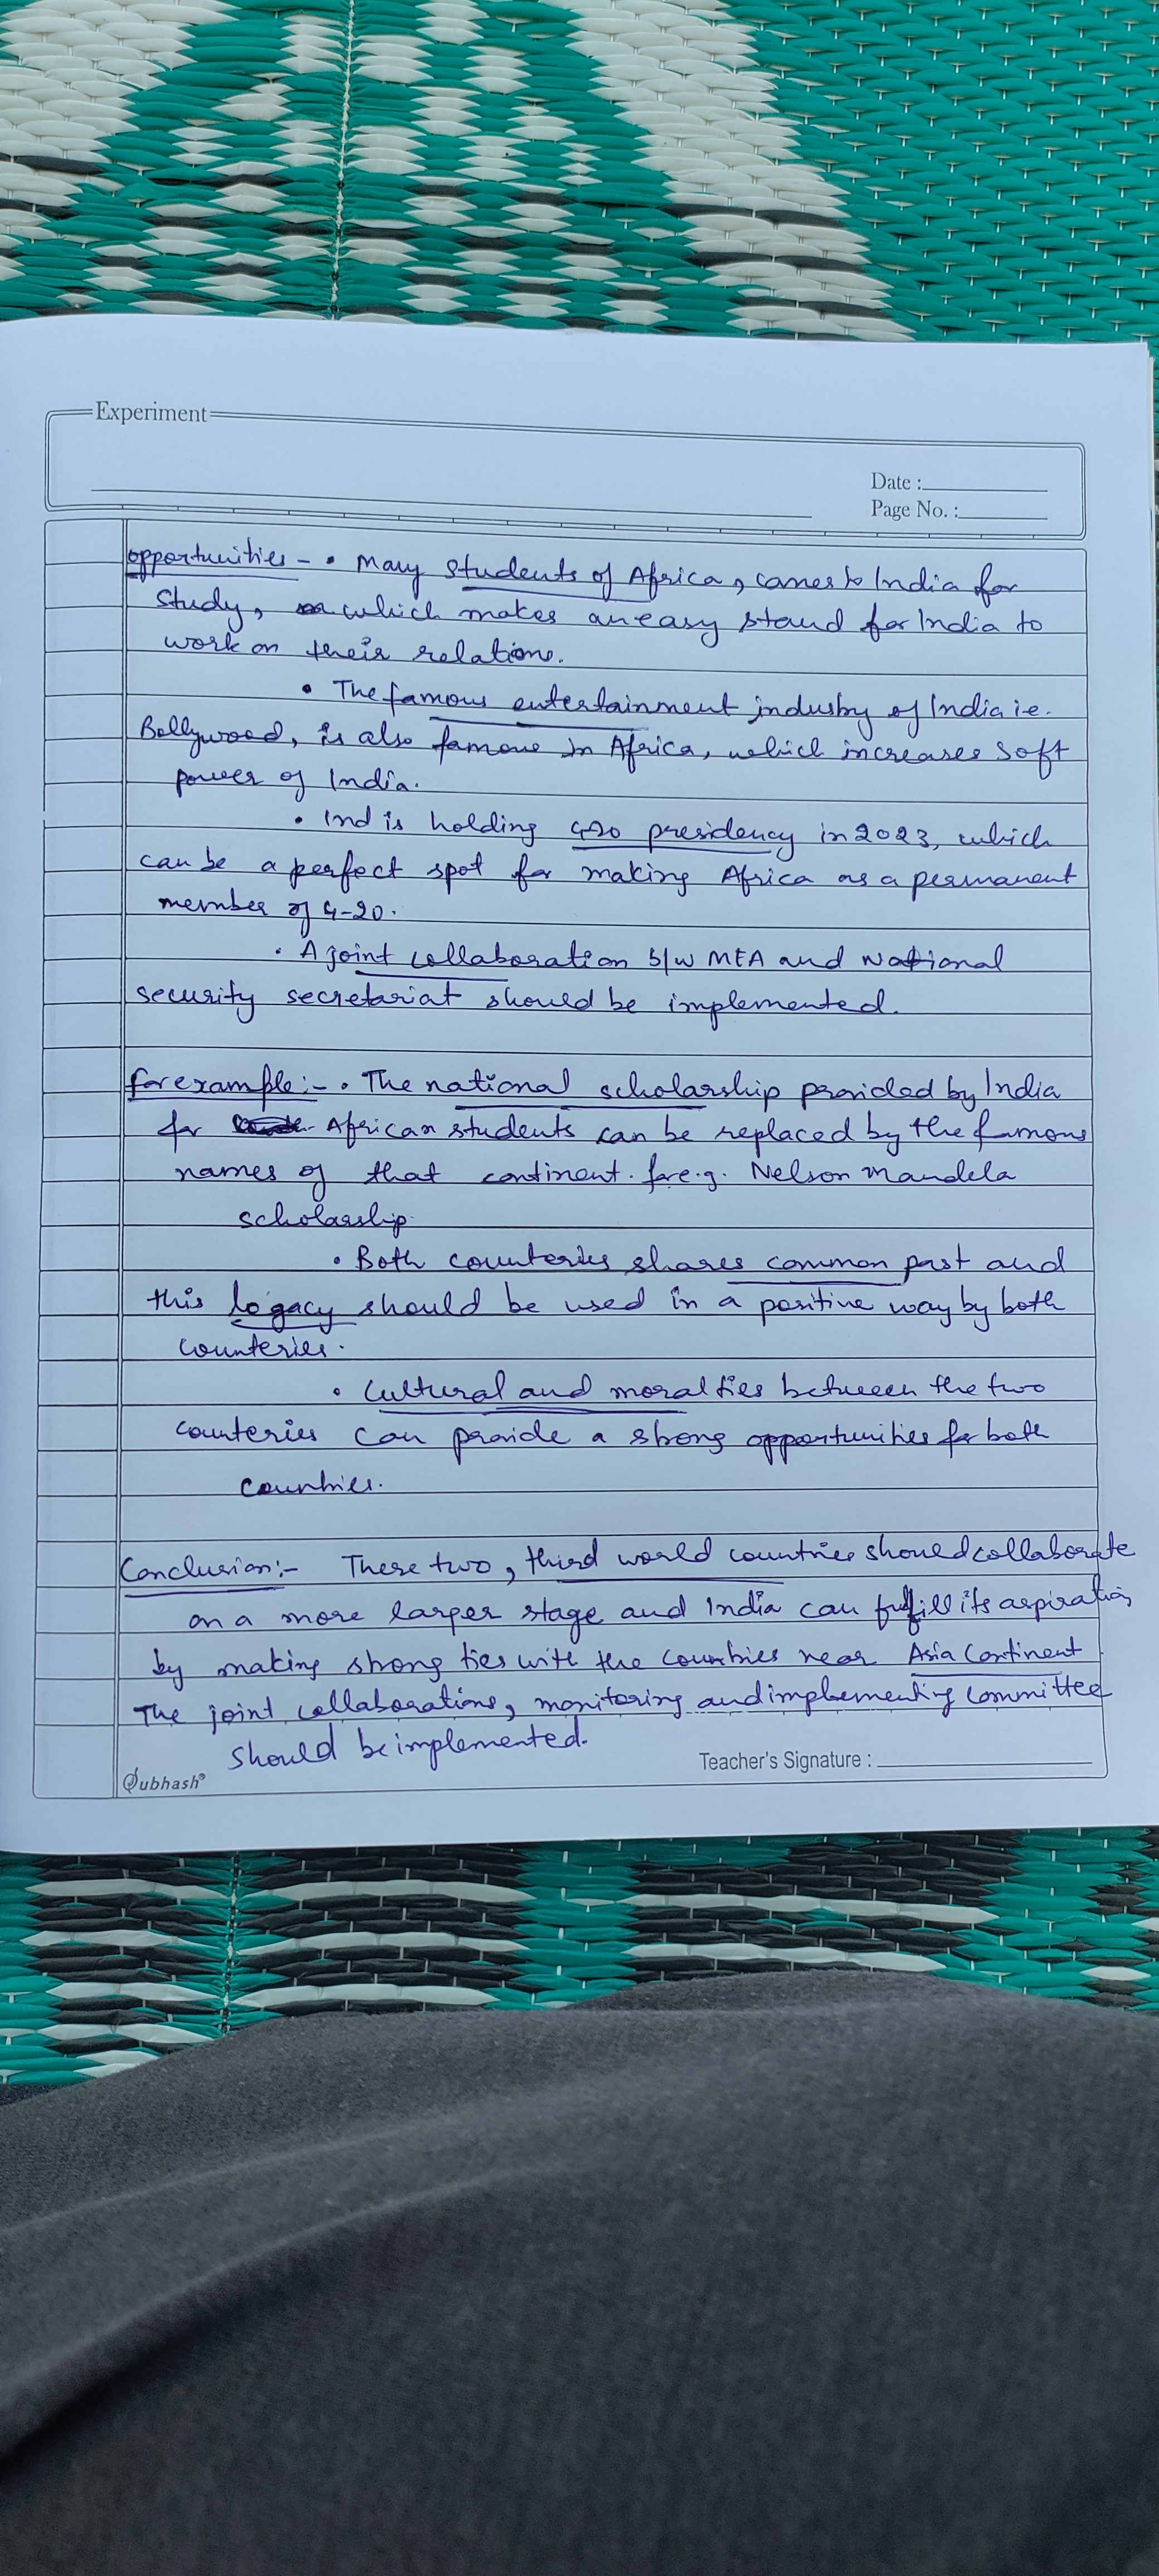 Experiment
Date :
Page No. :
opportunities - • Many students of Africa, comes to India for
study, which makes an easy stand for India to
work on their relations.
• The famous entertainment industry of India i.e.
Bollywood, is also famous in Africa, which increases soft
power of India.
• Ind is holding G20 presidency in 2023, which
can be a perfect spot for making Africa as a permanent
member of G-20.
• A joint collaboration b/w MEA and National
security secretariat should be implemented.
for example :- • The national scholarship provided by India
for African students can be replaced by the famous
names of that continent. for e.g. Nelson Mandela
scholarship.
• Both counteries shares common past and
this legacy should be used in a positive way by both
counteries.
• Cultural and moral ties between the two
counteries can provide a strong opportunities for both
countries.
Conclusion :- These two, third world countries should collaborate
on a more larger stage and India can fulfill its aspiration
by making strong ties with the countries near Asia Continent
The joint collaborations, monitoring and implementing committee
should be implemented.
Teacher's Signature :
Subhash®